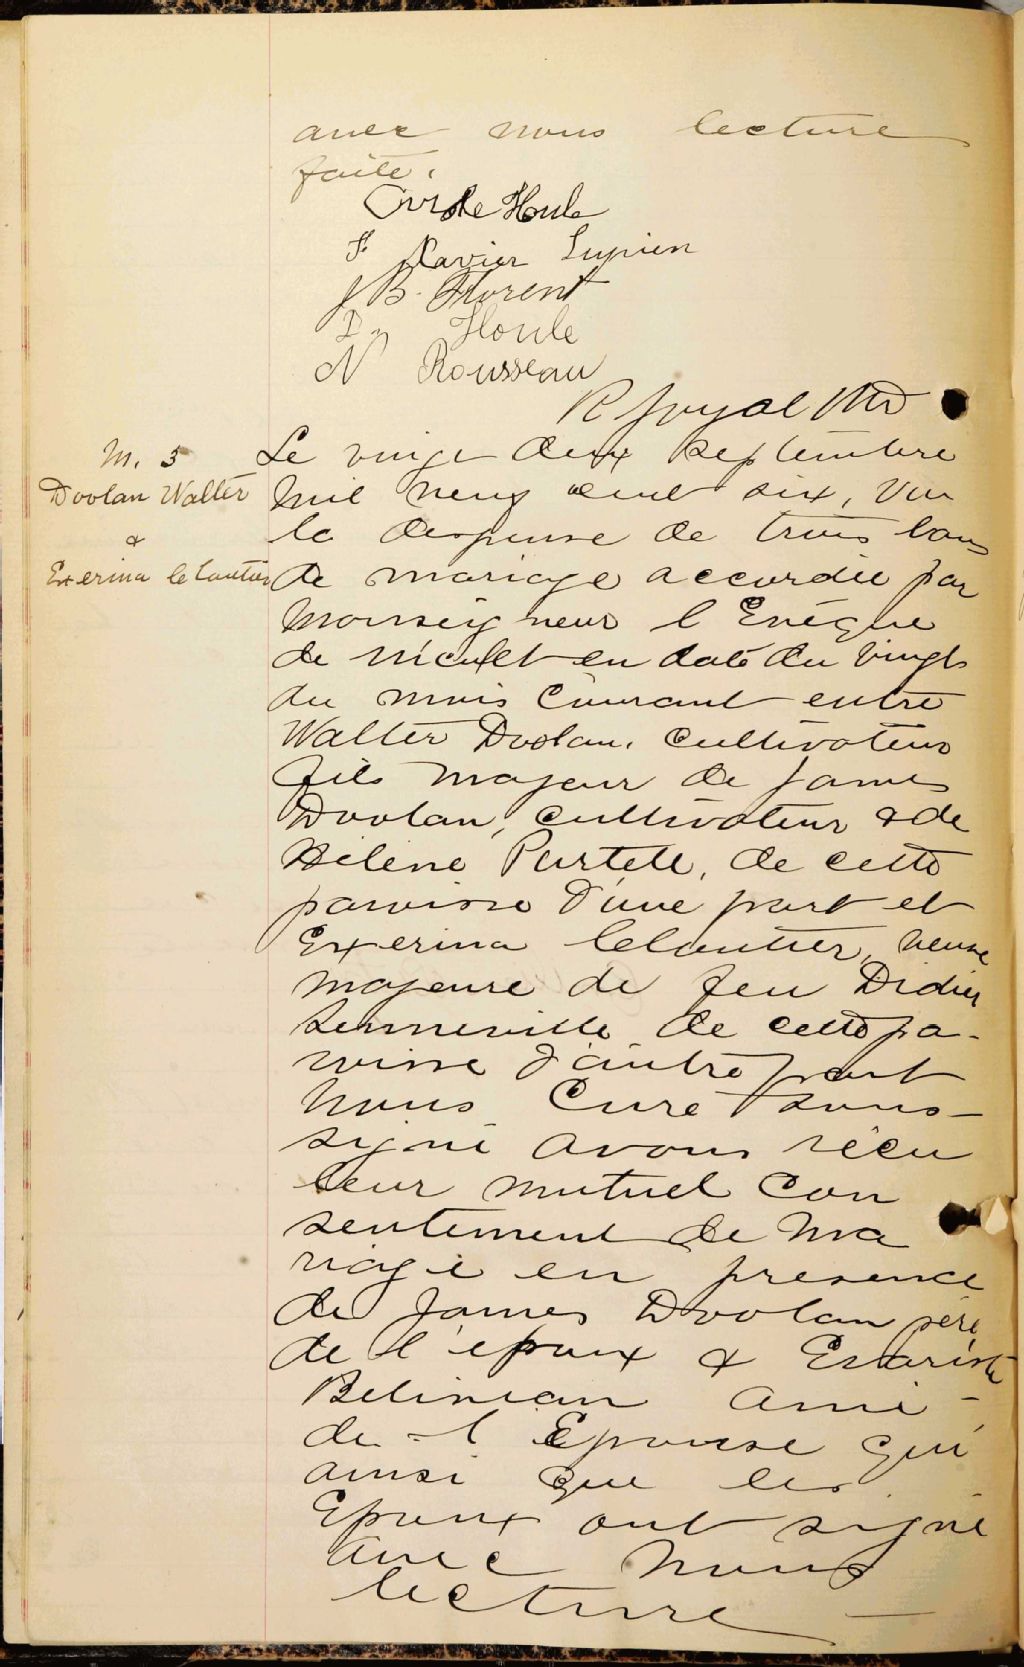 avec nous lecture
faite.
Houle
F. Xavier Lupien
J B. Florent
D. Houle
N Rousseau
R Joyal Ptre
M. 3
Doolan Walter
&
Exerina leloutier
Le vingt deux septembre
mil neuf cent six, Vu
la dispense de trois bans
de mariage accordée par
Monseigneur l Evêque
de Nicolet en date du vingt
du mois courant entre
Walter Doolan, cultivateur
fils majeur de James
Doolan, cultivateur & de
Hélène Purtell, de cette
paroisse d'une part et
Exerina leloutier, veuve
majeure de feu Didier
Senneville de cette pa-
roisse d'autre part
Nous Curé sous-
signé avons récu
leur mutuel con
sentement de ma
riage en presence
de James Doolan père
de l'époux & Evariste
ami
de l Epouse qui
ainsi que les
Epoux ont signé
avec nous
lecture